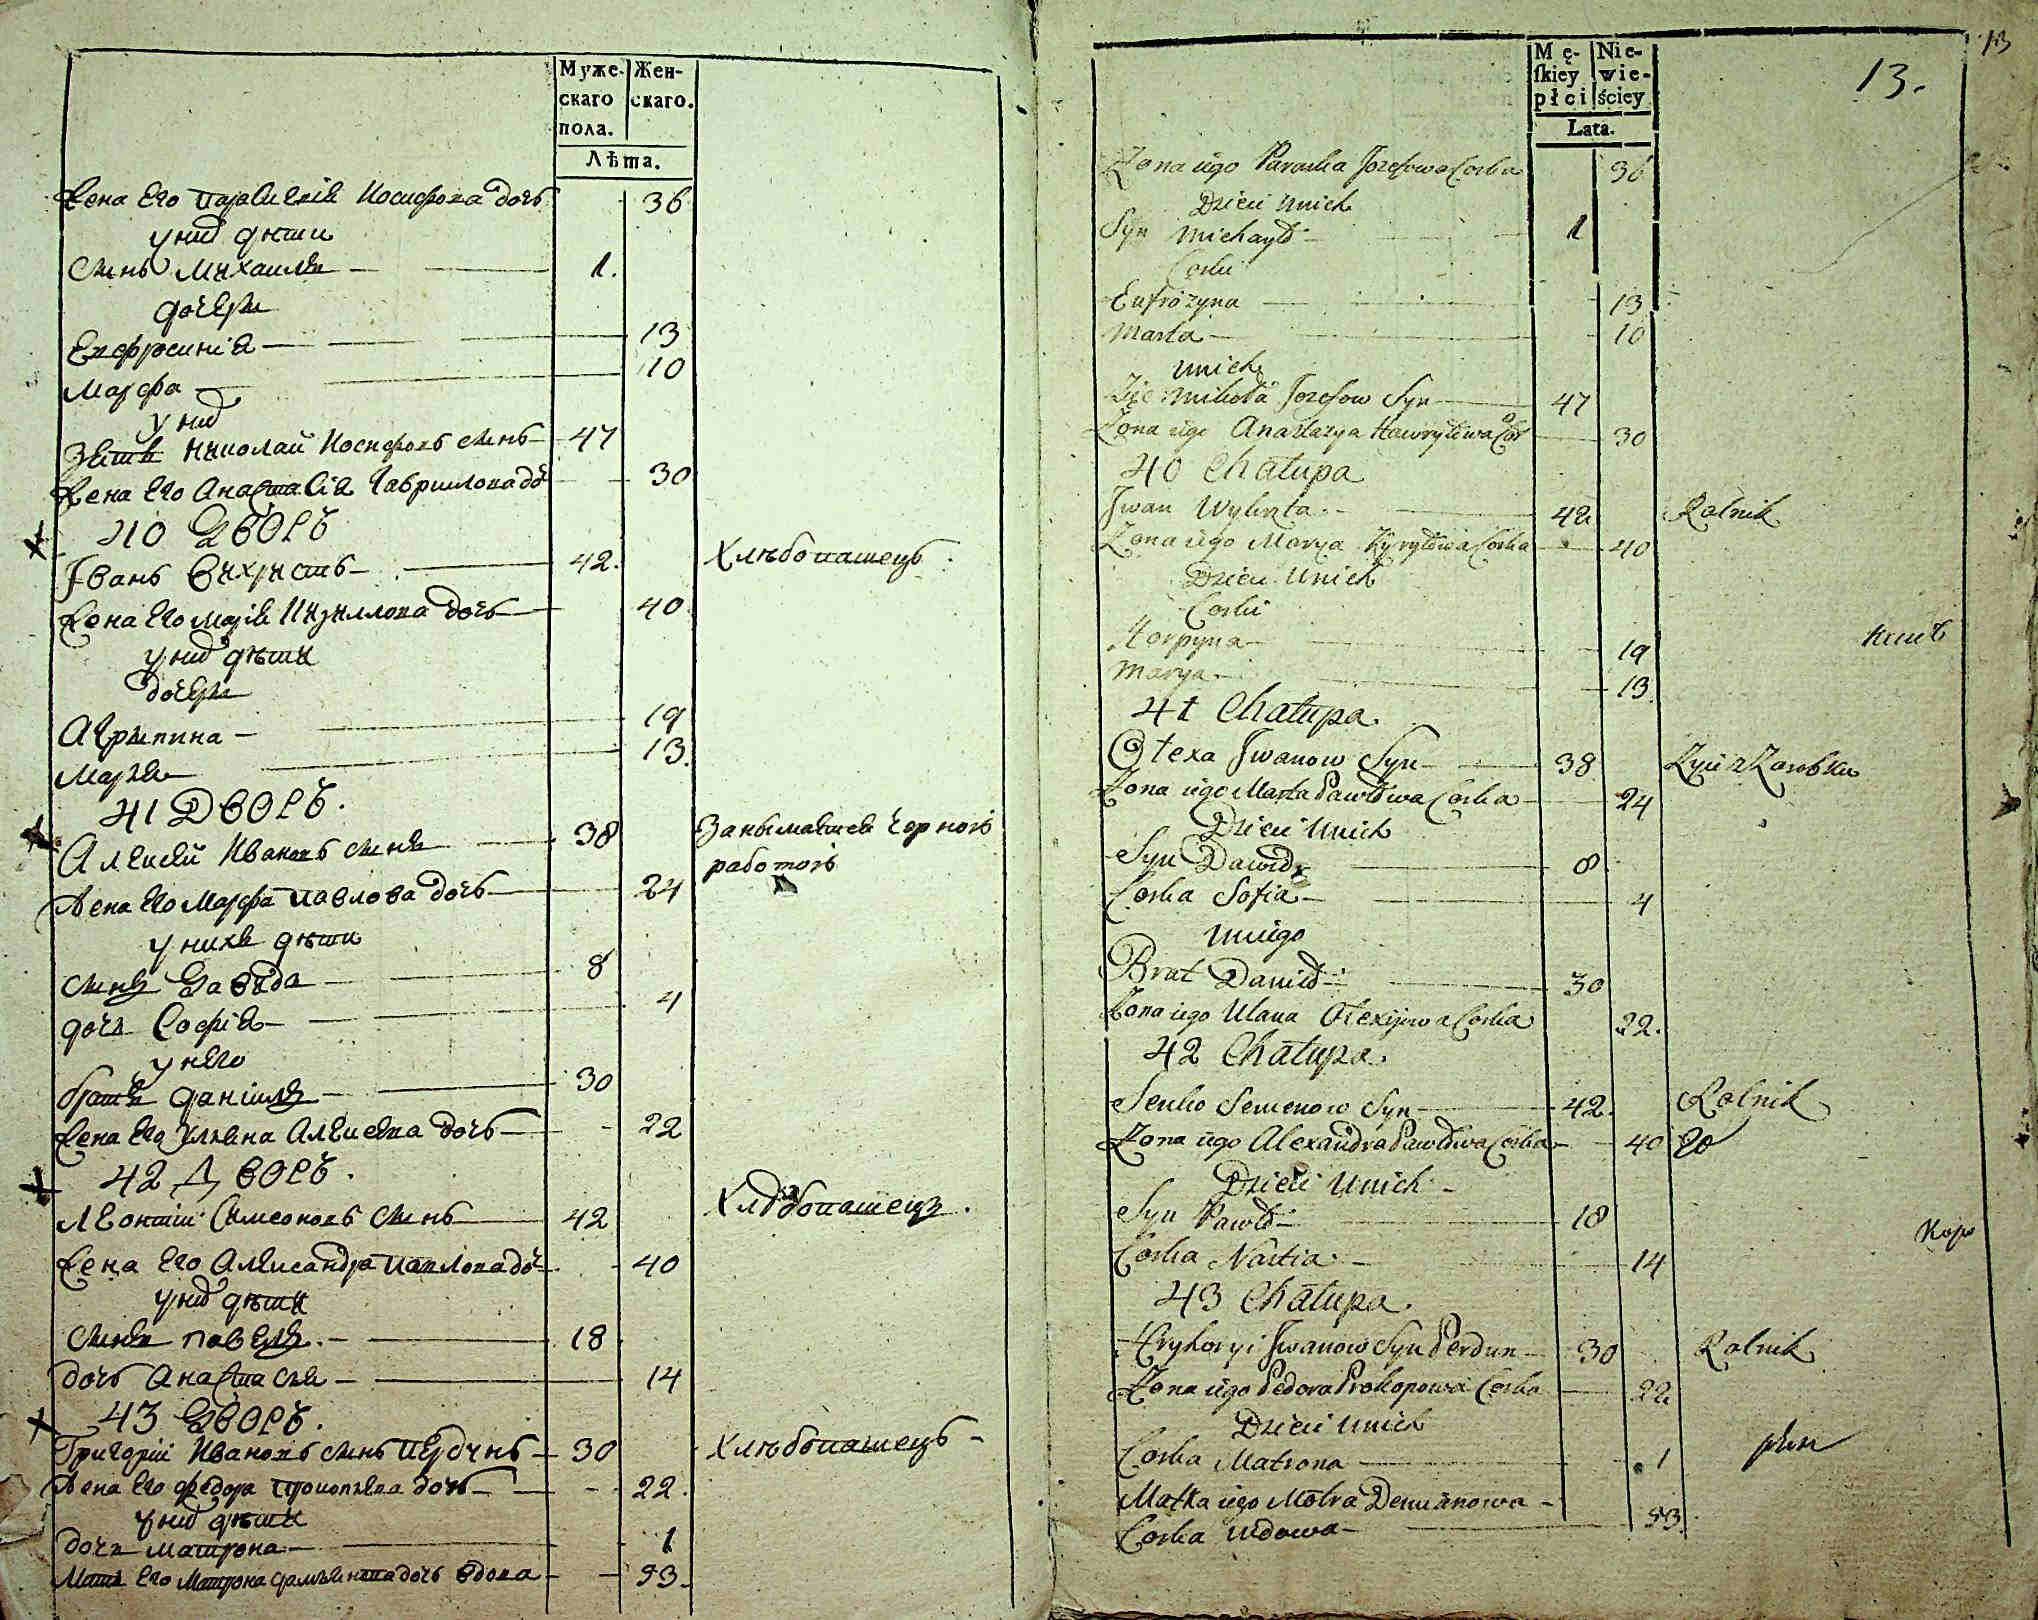 Муже-
скаго
пола.
Жен-
скаго.
Лѣта.
Жена Его Параскевія Иосифова дочь 36
у нихъ дѣти
Сынъ Михаилъ 1.
дочери
Евфросинія 13
Марфа 10
у нихъ
Зять Николай Иосифовъ сынъ 47
Жена Его Анастасія Гаврилова до 30
40 Дворъ
Іванъ Вихристъ 42. Хлѣбопашецъ.
Жена Его Марія Кирилова дочь 40
у нихъ дѣти
дочери
Агрипина 19
Марья 13.
41 Дворъ.
Алексѣй Ивановъ сынъ 38 Занымаетсе Чорною
работою
Жена Его Марфа Павлова дочь 24
у нихъ дѣти
сынъ Давыдъ 8
дочь Софія 4
у него
братъ Даніилъ 30
Жена Его Ульяна Алексѣева дочь 22
42 Дворъ.
Леонтій Симеоновъ сынъ 42 Хлѣбопашецъ.
Жена Его Александра Павлова до 40
у нихъ дѣти
Сынъ Павелъ. 18
дочь Анастасья 14
43 Дворъ.
Григорій Ивановъ сынъ Пердунъ 30 Хлѣбопашецъ
Жена Его Федора Прокопьева дочь 22.
у нихъ дѣти
дочь Матрона 1
Мать Его Матрона Демьянова дочь вдова 53.
13
13.
Mę-
skiey
płci
Nie-
wie-
ściey
Lata.
Zona iego Paraska Jozefowa Corka 36
Dzieci u nich
Syn Michayło 1
Corki
Eufrozyna 13
Marta 10
u nich
Zięc Mikoła Jozefow Syn 47
Zona iego Anastazya Hawryłowa Cor 30
40 Chałupa
Jwan Wychrta 42 Rolnik
Zona iego Marya Kyryłowa Corka 40
Dzieci u nich
Corki
Horpyna 19
Marya 13.
41 Chałupa.
Ołexa Jwanow Syn 38 Zyie z Zarobku
Zona iego Marta Pawłowa Corka 24
Dzieci u nich
Syn Dawid 8
Corka Sofia 4
u niego
Brat Daniło 30
Zona iego Ulana Olexijowa Corka 22.
42 Chałupa.
Senko Semenow Syn 42. Rolnik
Zona iego Alexandra Pawłowa Corka 40
Dzieci u nich
Syn Pawło 18
Corka Nastia 14
43 Chałupa.
Hryhoryi Jwanow Syn Perdun 30 Rolnik
Zona iego Fedora Prokopowa Corka 22
Dzieci u nich
Corka Matrona 1
Matka iego Motra Demianowa
Corka wdowa 53.